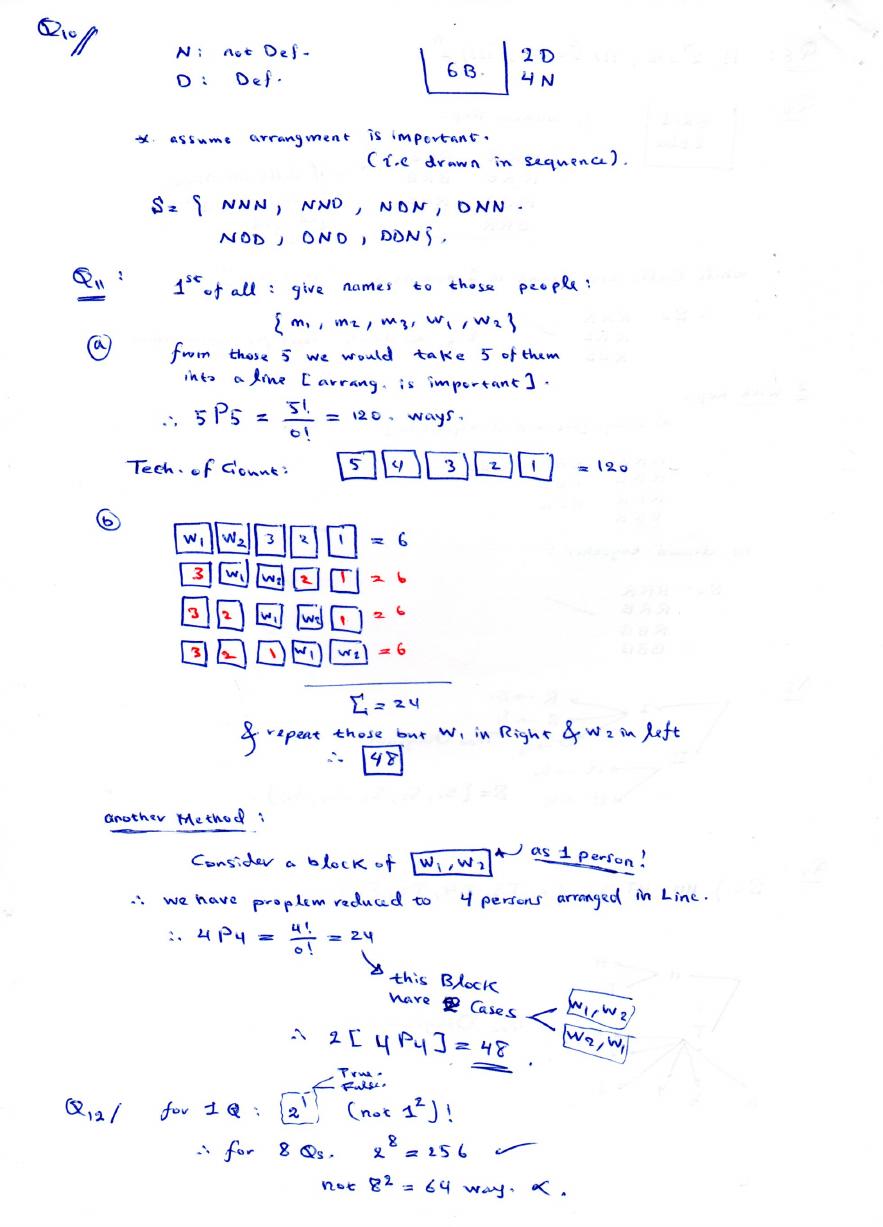 Q10//
N: not Def.
D: Def.
6B. 2D
4N
* assume arrangment is important.
(i.e drawn in sequence).
S= { NNN, NND, NDN, DNN.
NDD, DND, DDN}.
Q11: 1st of all: give names to those people:
{m1, m2, m3, W1, W2}
(a) from those 5 we would take 5 of them
into a line [arrang. is important].
∴ 5P5 = 5!/0! = 120. ways.
Tech. of Count: 5 4 3 2 1 = 120
(b)
W1 W2 3 2 1 = 6
3 W1 W2 2 1 = 6
3 2 W1 W2 1 = 6
3 2 1 W1 W2 = 6
Σ = 24
& repeat those but W1 in Right & W2 in left
∴ 48
another Method:
Consider a block of W1, W2 as 1 person!
∴ we have proplem reduced to 4 persons arranged in Line.
∴ 4P4 = 4!/0! = 24
this Block
have 2 Cases
W1, W2
W2, W1
∴ 2[4P4] = 48.
True.
False.
Q12/ for 1Q: 2^1 (not 1^2)!
∴ for 8 Qs. 2^8 = 256 ✓
not 8^2 = 64 way. ×.